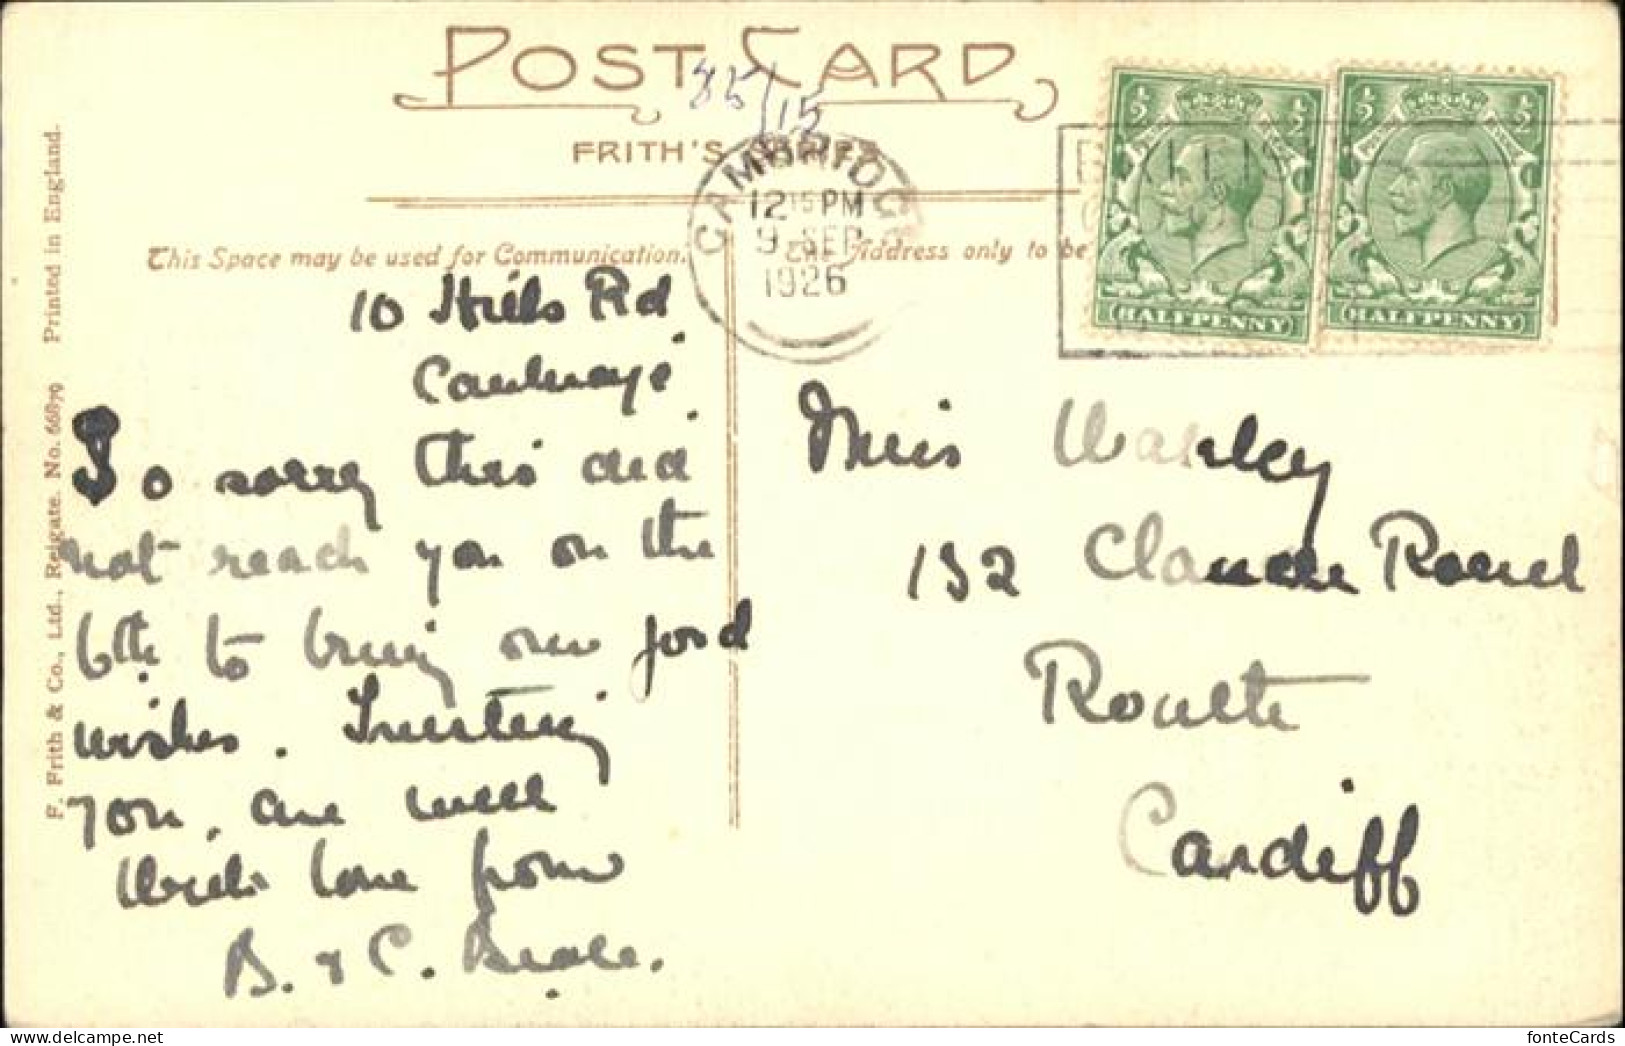 POST CARD
85/15
FRITH'S SERIES
CAMBRIDGE
12 15 PM
9 SEP
1926
BRITISH
½ ½
HALFPENNY
½ ½
HALFPENNY
This Space may be used for Communication.
The Address only to be
F. Frith & Co., Ltd., Reigate. No. 66879 Printed in England.
10 Hills Rd
Cambridge
So sorry this did
not reach you on the
6th to bring our good
wishes. Trusting
you, are well
With love from
B. & C. Beale.
Miss
132 Claude Road
Roath
Cardiff
fonteCards